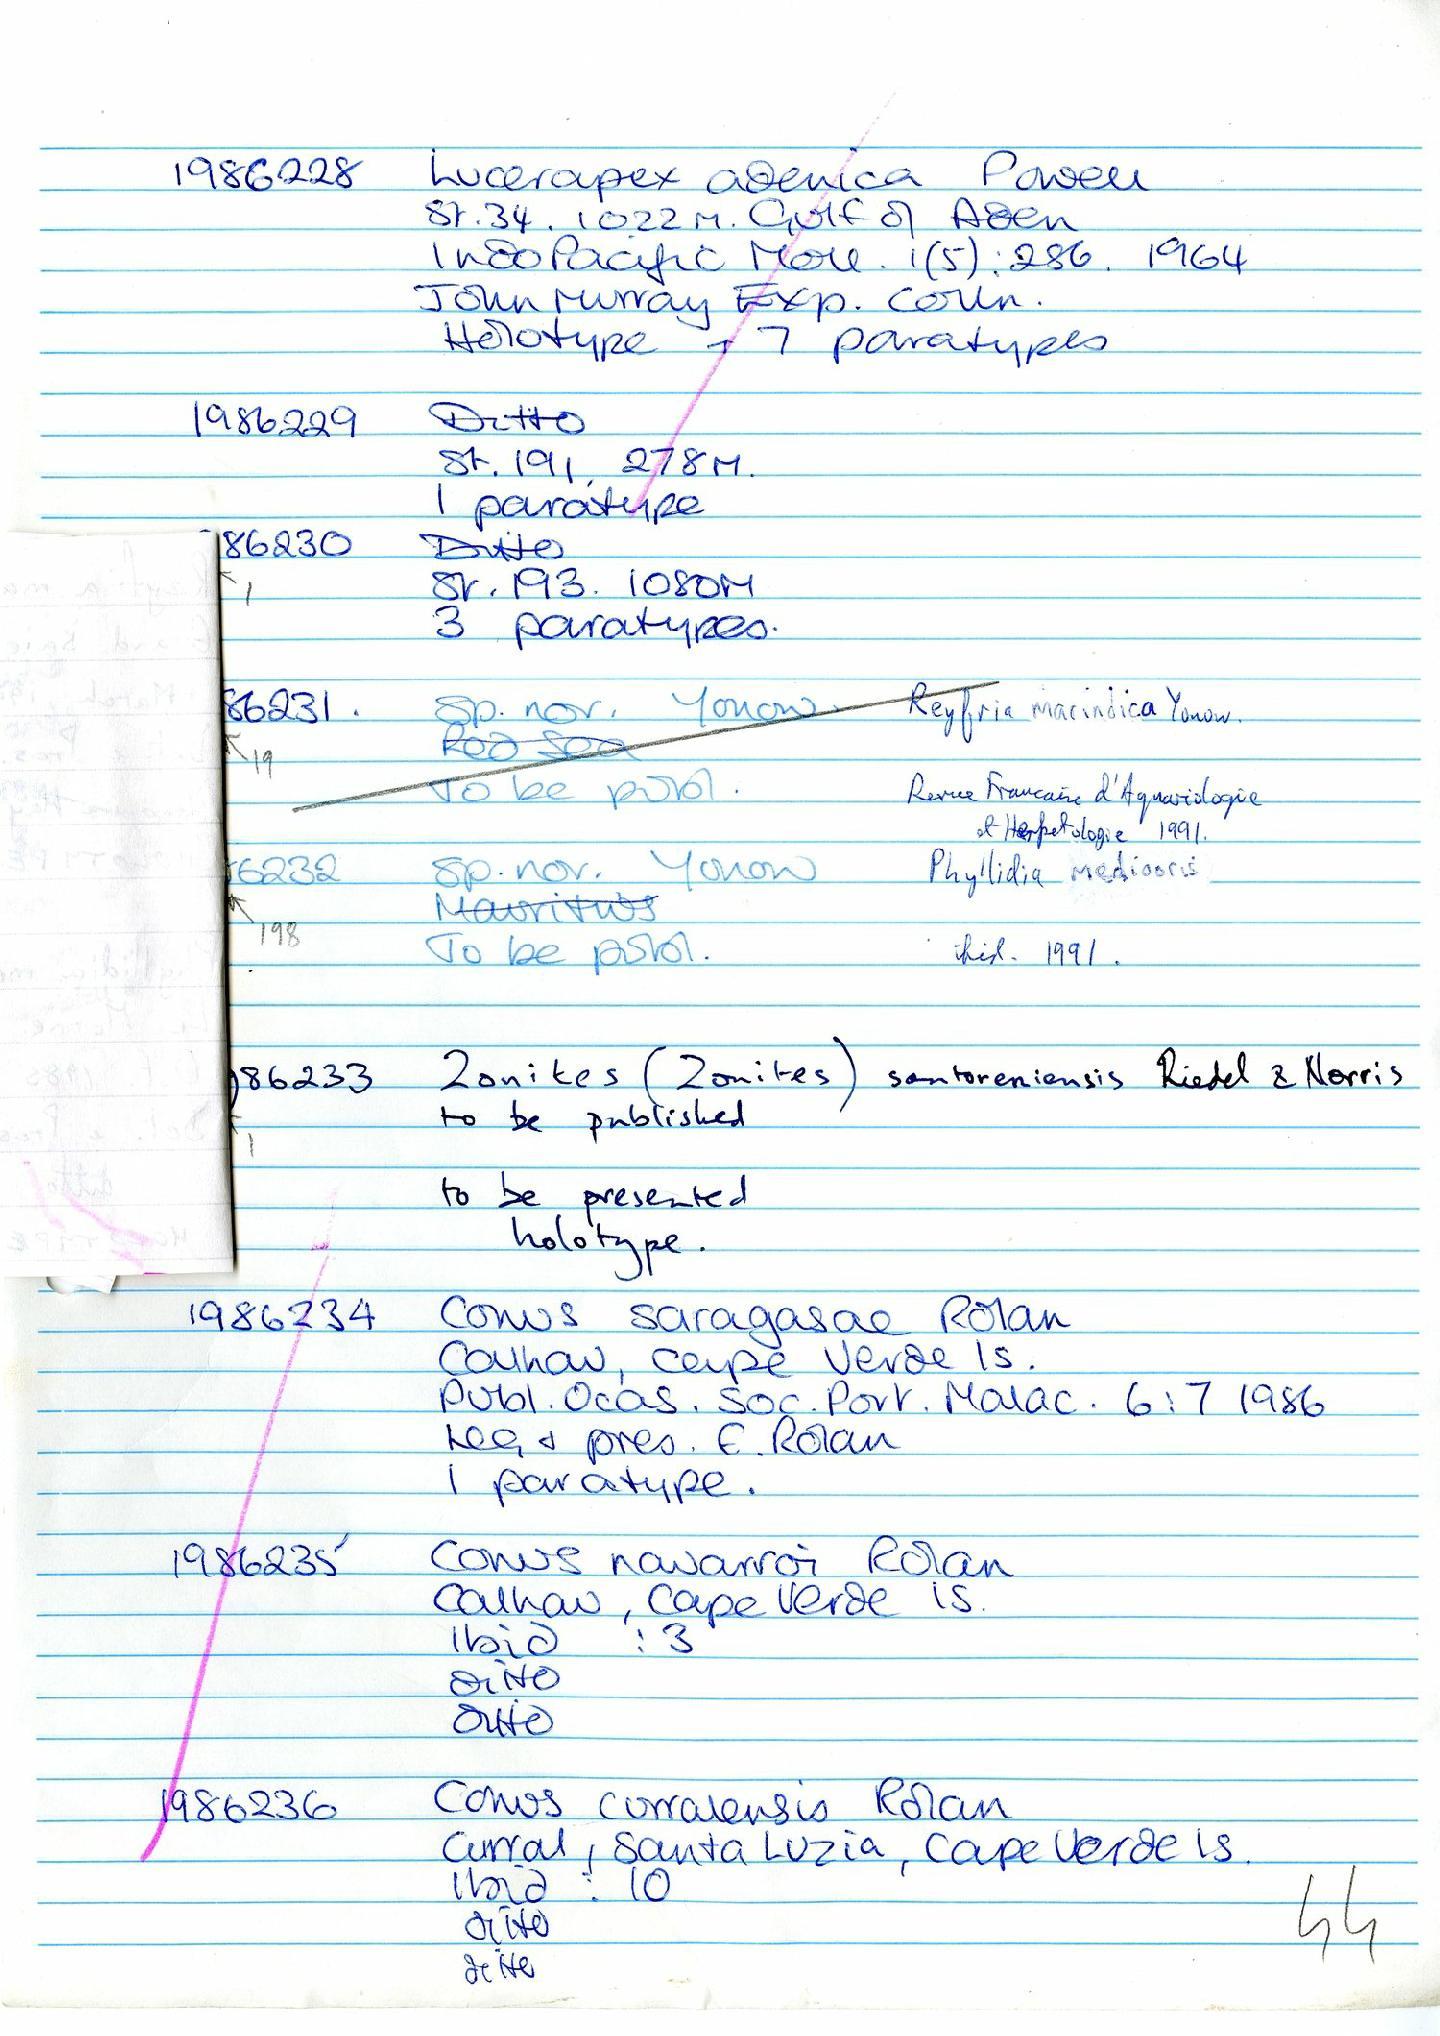 1986228 Lucerapex adenica Powell
St. 34. 1022 M. Gulf of Aden
IndoPacific Moll. 1(5):286. 1964
John Murray Exp. Colln.
Holotype + 7 paratypes
1986229 Ditto
St. 191, 278 M.
1 paratype
86230 Ditto
1
St. 193. 1080M
3 paratypes.
86231. Sp. nov. Yonow. Reyfria macindica Yonow.
19 Red Sea
To be publ. Revue Francaise d'Aquariologie
et Herpetologie 1991.
6232 Sp. nov. Yonow Phyllidia mediocris
Mauritius
198
To be publ. ibid. 1991.
986233 Zonites (Zonites) santoreniensis Riedel & Norris
to be published
1
to be presented
holotype.
1986234 Conus saragasae Rolan
Calhau, Cape Verde Is.
Publ. Ocas. Soc. Port. Malac. 6:7 1986
Leg & pres. E. Rolan
1 paratype.
1986235 Conus navarroi Rolan
Calhau, Cape Verde Is.
Ibid :3
ditto
ditto
1986236 Conus curralensis Rolan
Curral, Santa Luzia, Cape Verde Is.
Ibid : 10
ditto
ditto
44